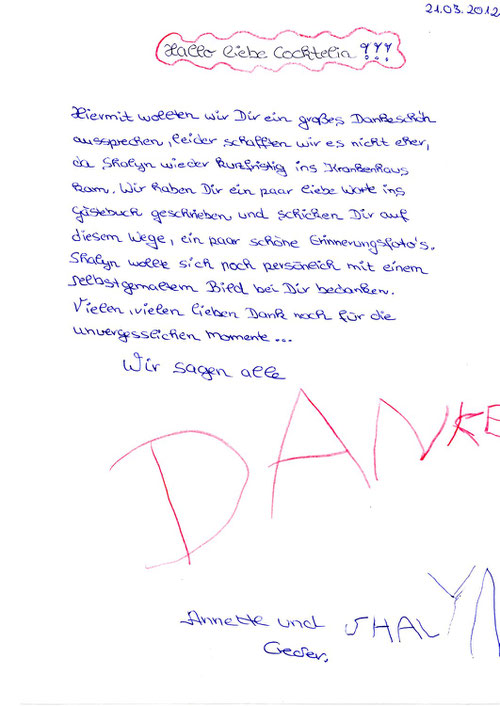 21.03.2012
Hallo liebe Cocktelia !!!
Hiermit wollten wir Dir ein großes Dankeschön
aussprechen, leider schafften wir es nicht eher,
da Shalyn wieder kurzfristig ins Krankenhaus
kam. Wir haben Dir ein paar liebe Worte ins
Gästebuch geschrieben und schicken Dir auf
diesem Wege, ein paar schöne Erinnerungsfoto's.
Shalyn wollte sich noch persönlich mit einem
selbstgemaltem Bild bei Dir bedanken.
Vielen, vielen lieben Dank noch für die
unvergesslichen Momente...
Wir sagen alle
DANKE
Annette und SHALYN